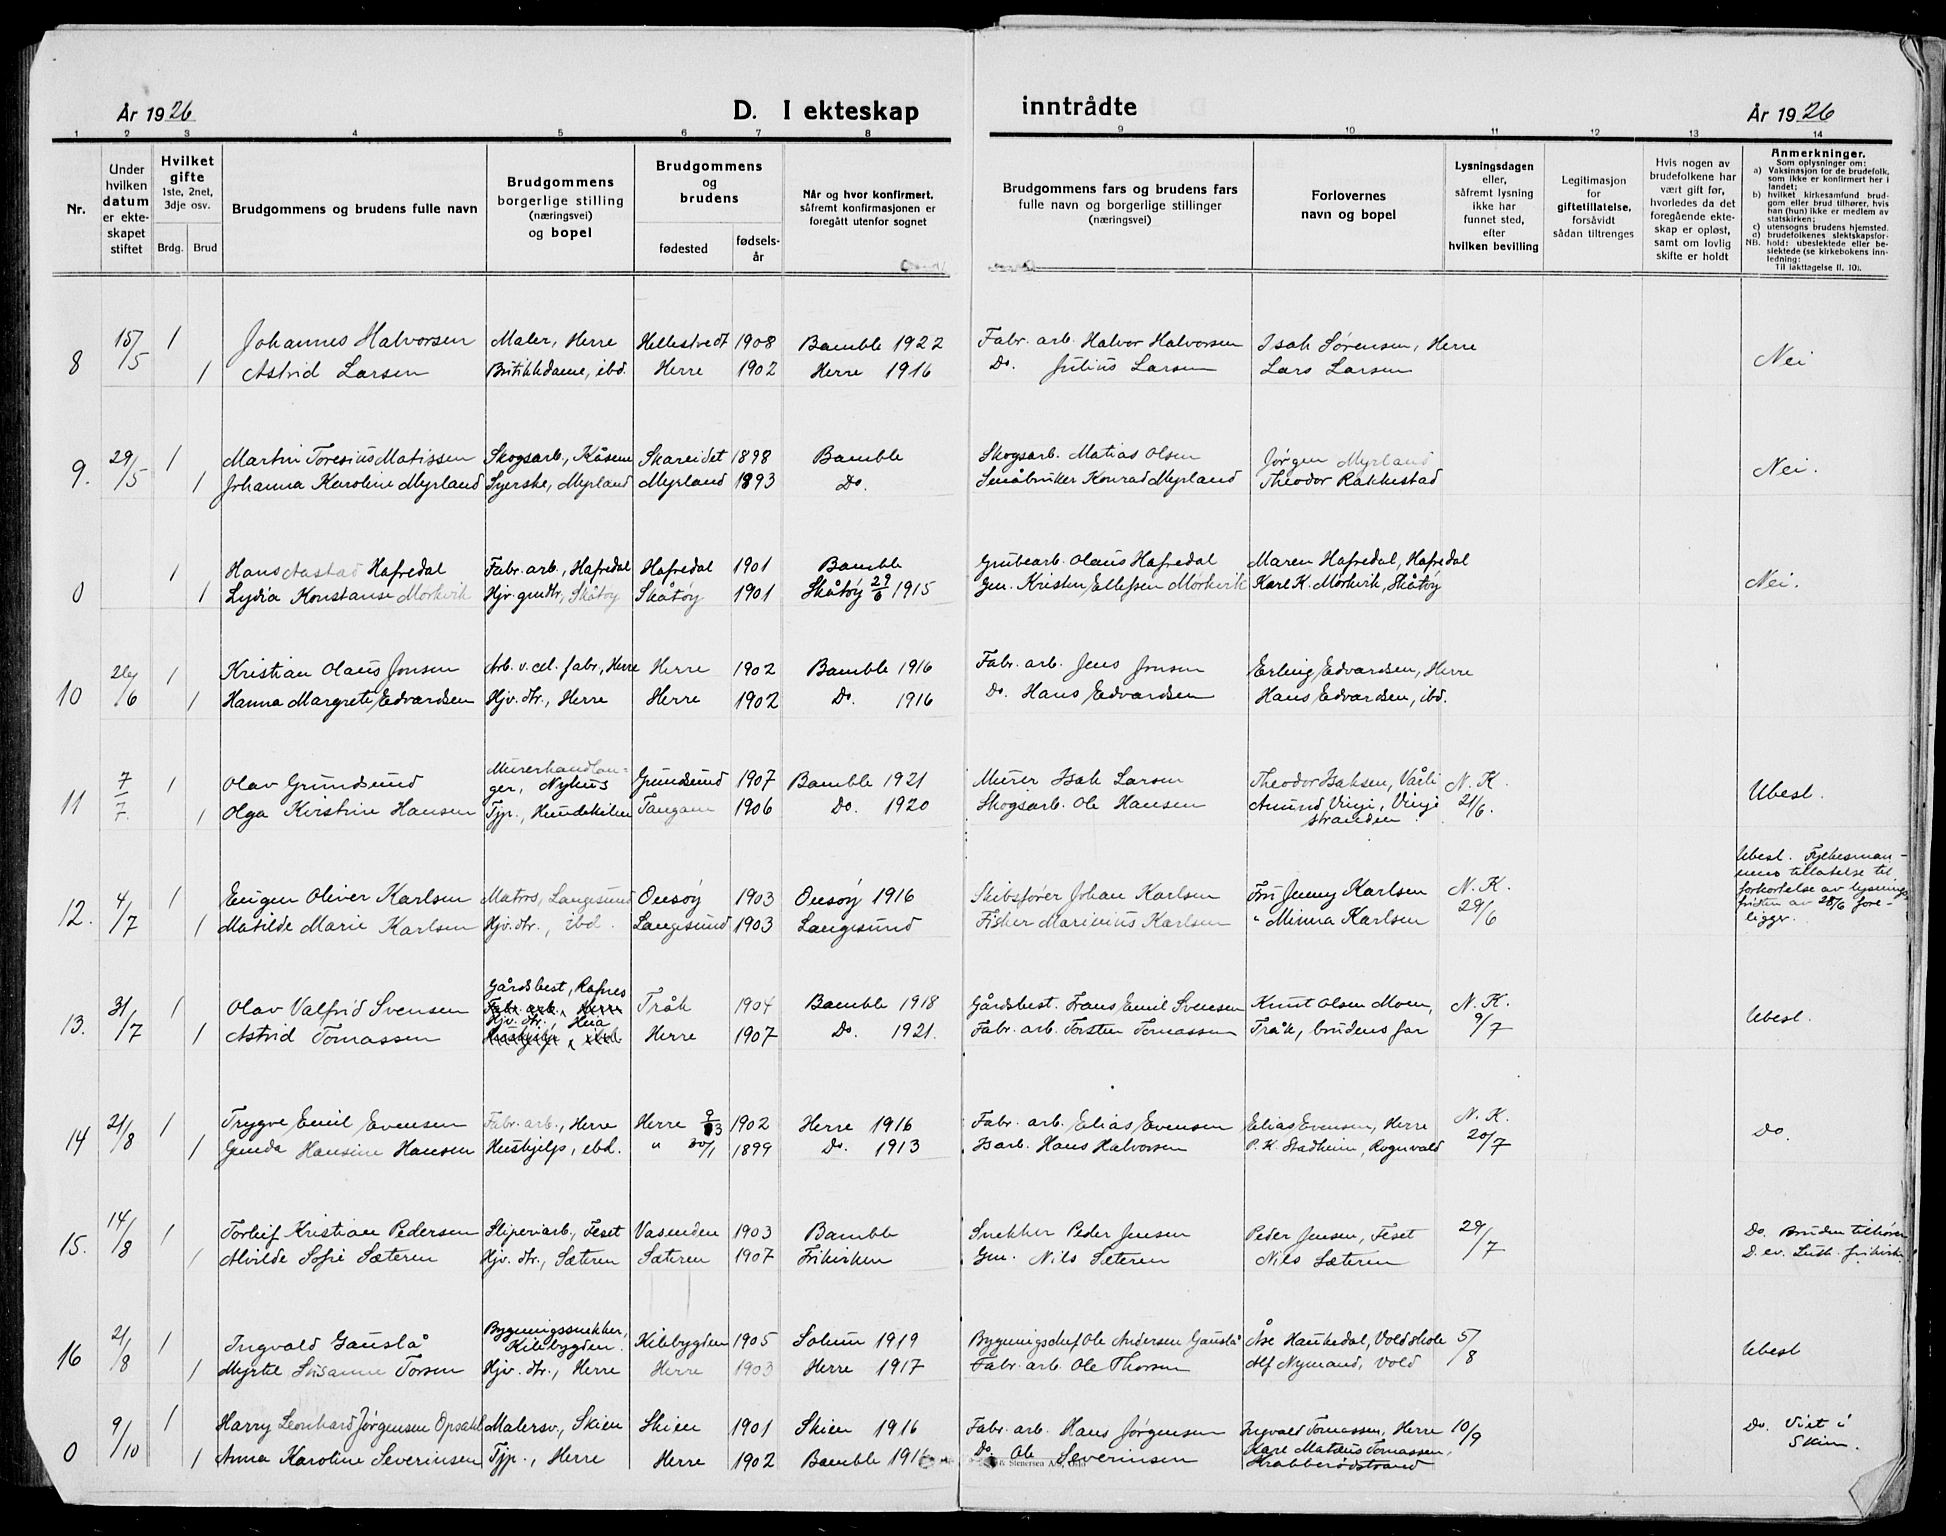 År 1926
D. I ekteskap inntrådte
År 1926
1 2 3 4 5 6 7 8 9 10 11 12 13 14
Nr.
Under hvilken datum er ekteskapet stiftet
Hvilket gifte 1ste, 2net, 3dje osv.
Brdg. Brud
Brudgommens og brudens fulle navn
Brudgommens borgerlige stilling (næringsvei) og bopel
Brudgommens og brudens
fødested fødselsår
Når og hvor konfirmert, såfremt konfirmasjonen er foregått utenfor sognet
Brudgommens fars og brudens fars fulle navn og borgerlige stillinger (næringsvei)
Forlovernes navn og bopel
Lysningsdagen eller, såfremt lysning ikke har funnet sted, efter hvilken bevilling
Legitimasjon for giftetillatelse, forsåvidt sådan tiltrenges
Hvis nogen av brudefolkene har vært gift før, hvorledes da det foregående ekteskap er opløst, samt om lovlig skifte er holdt
Anmerkninger.
Som oplysninger om:
a) Vaksinasjon for de brudefolk, som ikke er konfirmert her i landet;
b) hvilket kirkesamfund brudgom eller brud tilhører, hvis han (hun) ikke er medlem av statskirken;
c) utensogns brudens hjemsted.
d) brudefolkenes slektskapsforhold: ubeslektede eller beslektede (se kirkebokens innledning:
NB.
Til iakttagelse II. 10).
8 15/5 1 Johannes Halvorsen Maler, Herre Hellestvedt 1908 Bamble 1922 Fabr. arb. Halvor Halvorsen Isak Sørensen, Herre
1 Astrid Larsen Butikkdame, ibd. Herre 1902 Herre 1916 Do. Julius Larsen Lars Larsen Nei
9. 29/5 1 Martin Toresius Matissen Skogsarb., Kåsene Skareidet 1898 Bamble Skogsarb. Matias Olsen Jørgen Myrland
1 Johanna Karoline Myrland Syerske, Myrland Myrland 1893 Do. Småbruker Konrad Myrland Theodor Rakkestad Nei.
0 1 Hans Aastad Hafredal Fabr. arb., Hafredal Hafredal 1901 Bamble Grubearb. Olaus Hafredal Maren Hafredal, Hafredal
1 Lydia Konstanse Mörkvik Hjv. gmdtr, Skåtøy Skåtøy 1901 Skåtøy 29/6 1915 Gm. Kristen Ellefsen Mörkvik Karl K. Mörkvik, Skåtøy Nei.
10 26/6 1 Kristian Olaus Jonsen Arb. v. cel. fabr, Herre Herre 1902 Bamble 1916 Fabr. arb. Jens Jonsen Erling Edvardsen, Herre
1 Hanna Margrete Edvardsen Hjv. dtr., Herre Herre 1902 Do 1916 Do. Hans Edvardsen Hans Edvardsen, ibd.
11 7/7. 1 Olav Grundsund Murerhandlanger, Nyhus Grundsund 1907 Bamble 1921 Murer Isak Larsen Theodor Isaksen, Vårli N. K.
1 Olga Kirstine Hansen Tjp., Hundekilen Tangane 1906 Do. 1920 Skogsarb. Ole Hansen Amund Vinje, Vinjestranden 21/6. Ubesl.
12. 4/7 1 Eugen Oliver Karlsen Matros, Langesund Onsøy 1903 Onsøy 1916 Skibsfører Johan Karlsen Fru Jenny Karlsen N. K.
1 Matilde Marie Karlsen Hjv. dtr., ibd. Langesund 1903 Langesund Fisker Marinius Karlsen " Minna Karlsen 29/6
Ubesl. Fylkesmannens tillatelse til forkortelse av lysningsfristen av 28/6 foreligger.
13. 31/7 1 Olav Valfrid Svensen Gårdsbest, Rafnes Fabr. arb., Herre Tråk 1904 Bamble 1918 Gårdsbest. Frans Emil Svensen Knut Olsen Moen, N. K.
1 Astrid Tomassen Hjv. dtr., Heia Herre 1907 Do. 1921. Fabr. arb. Torsten Tomassen Tråk, brudens far 9/7 Ubesl.
14 21/8 1 Trygve Emil Evensen Fabr. arb., Herre Herre 9/3 1902 Herre 1916 Fabr. arb. Elias Evensen Elias Evensen, Herre N. K.
1 Gunda Hansine Hansen Hushjelp, ibd. " 30/1 1899 Do. 1913 Isarb. Hans Halvorsen P. K. Stadheim, Rognvald 20/7 Do.
15. 14/8 1 Torleif Kristian Pedersen Sliperiarb, Feset Vasenden 1903 Bamble Snekker Peder Jensen Peder Jensen, Feset 29/7 Do. Bruden tilhører
1 Alvilde Sofie Sæteren Hjv. dtr., Sæteren Sæteren 1907 Frikirken Gm. Nils Sæteren Nils Sæteren D. ev. Luth. frikirke
16 21/8 1 Ingvald Gauslå Bygningssnekker, Kilebygden. Kilebygden 1905 Solum 1919 Bygningschef Ole Andersen Gauslå Åse Haukedal, Voldskole 5/8
1 Myrtel Susanne Torsen Hjv. dtr., Herre Herre 1903 Herre 1917 Fabr. arb. Ole Thorsen Alf Nymand, Vold Ubesl
0 9/10 1 Harry Leonhard Jørgensen Opsahl Malersv., Skien Skien 1901 Skien 1916 Fabr. arb. Hans Jørgensen Ingvald Tomassen, Herre 10/9 Do. Viet i Skien.
1 Anna Karoline Severinsen Tjp., Herre Herre 1902 Bamble 1916 Do. Ole Severinsen Karl Mateus Tomassen, Krabberødstrand